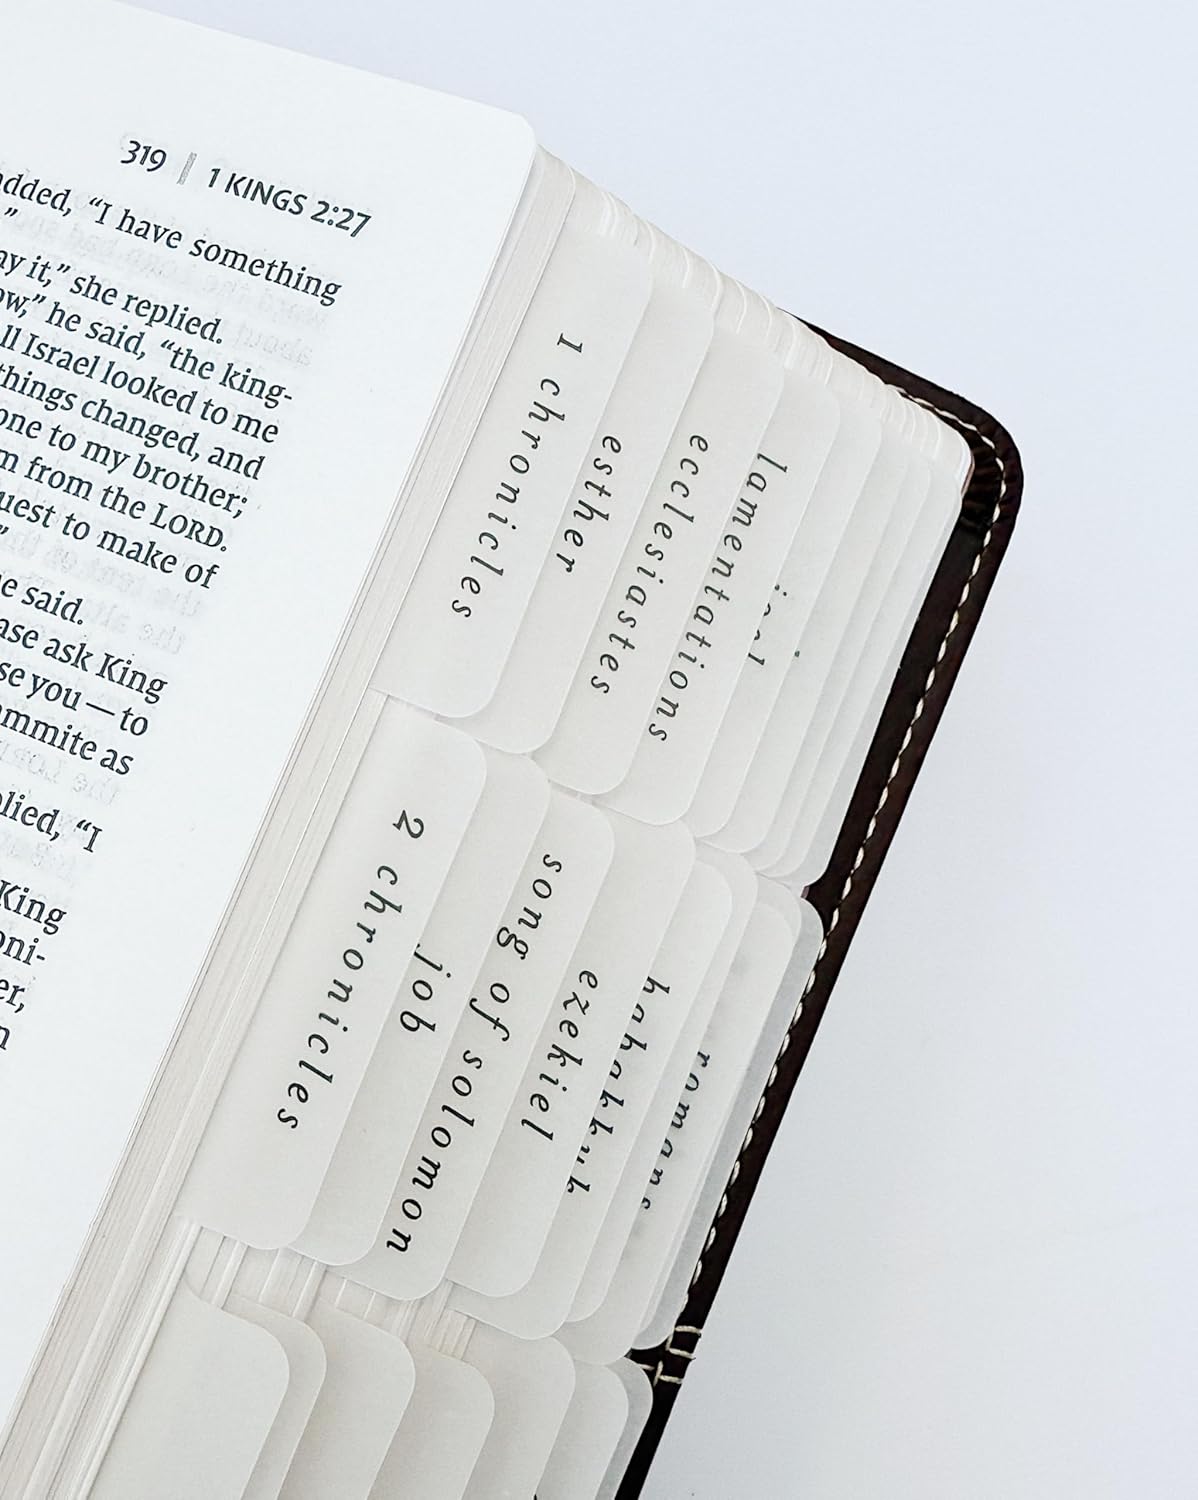 319 | 1 KINGS 2:27
added, “I have something
”
ay it,” she replied.
ow,” he said, “the king-
ll Israel looked to me
things changed, and
one to my brother;
m from the LORD.
uest to make of
”
e said.
ase ask King
se you — to
mmite as
plied, “I
King
oni-
er,
n
1 chronicles
esther
ecclesiastes
lamentations
joel
2 chronicles
job
song of solomon
ezekiel
habakkuk
romans